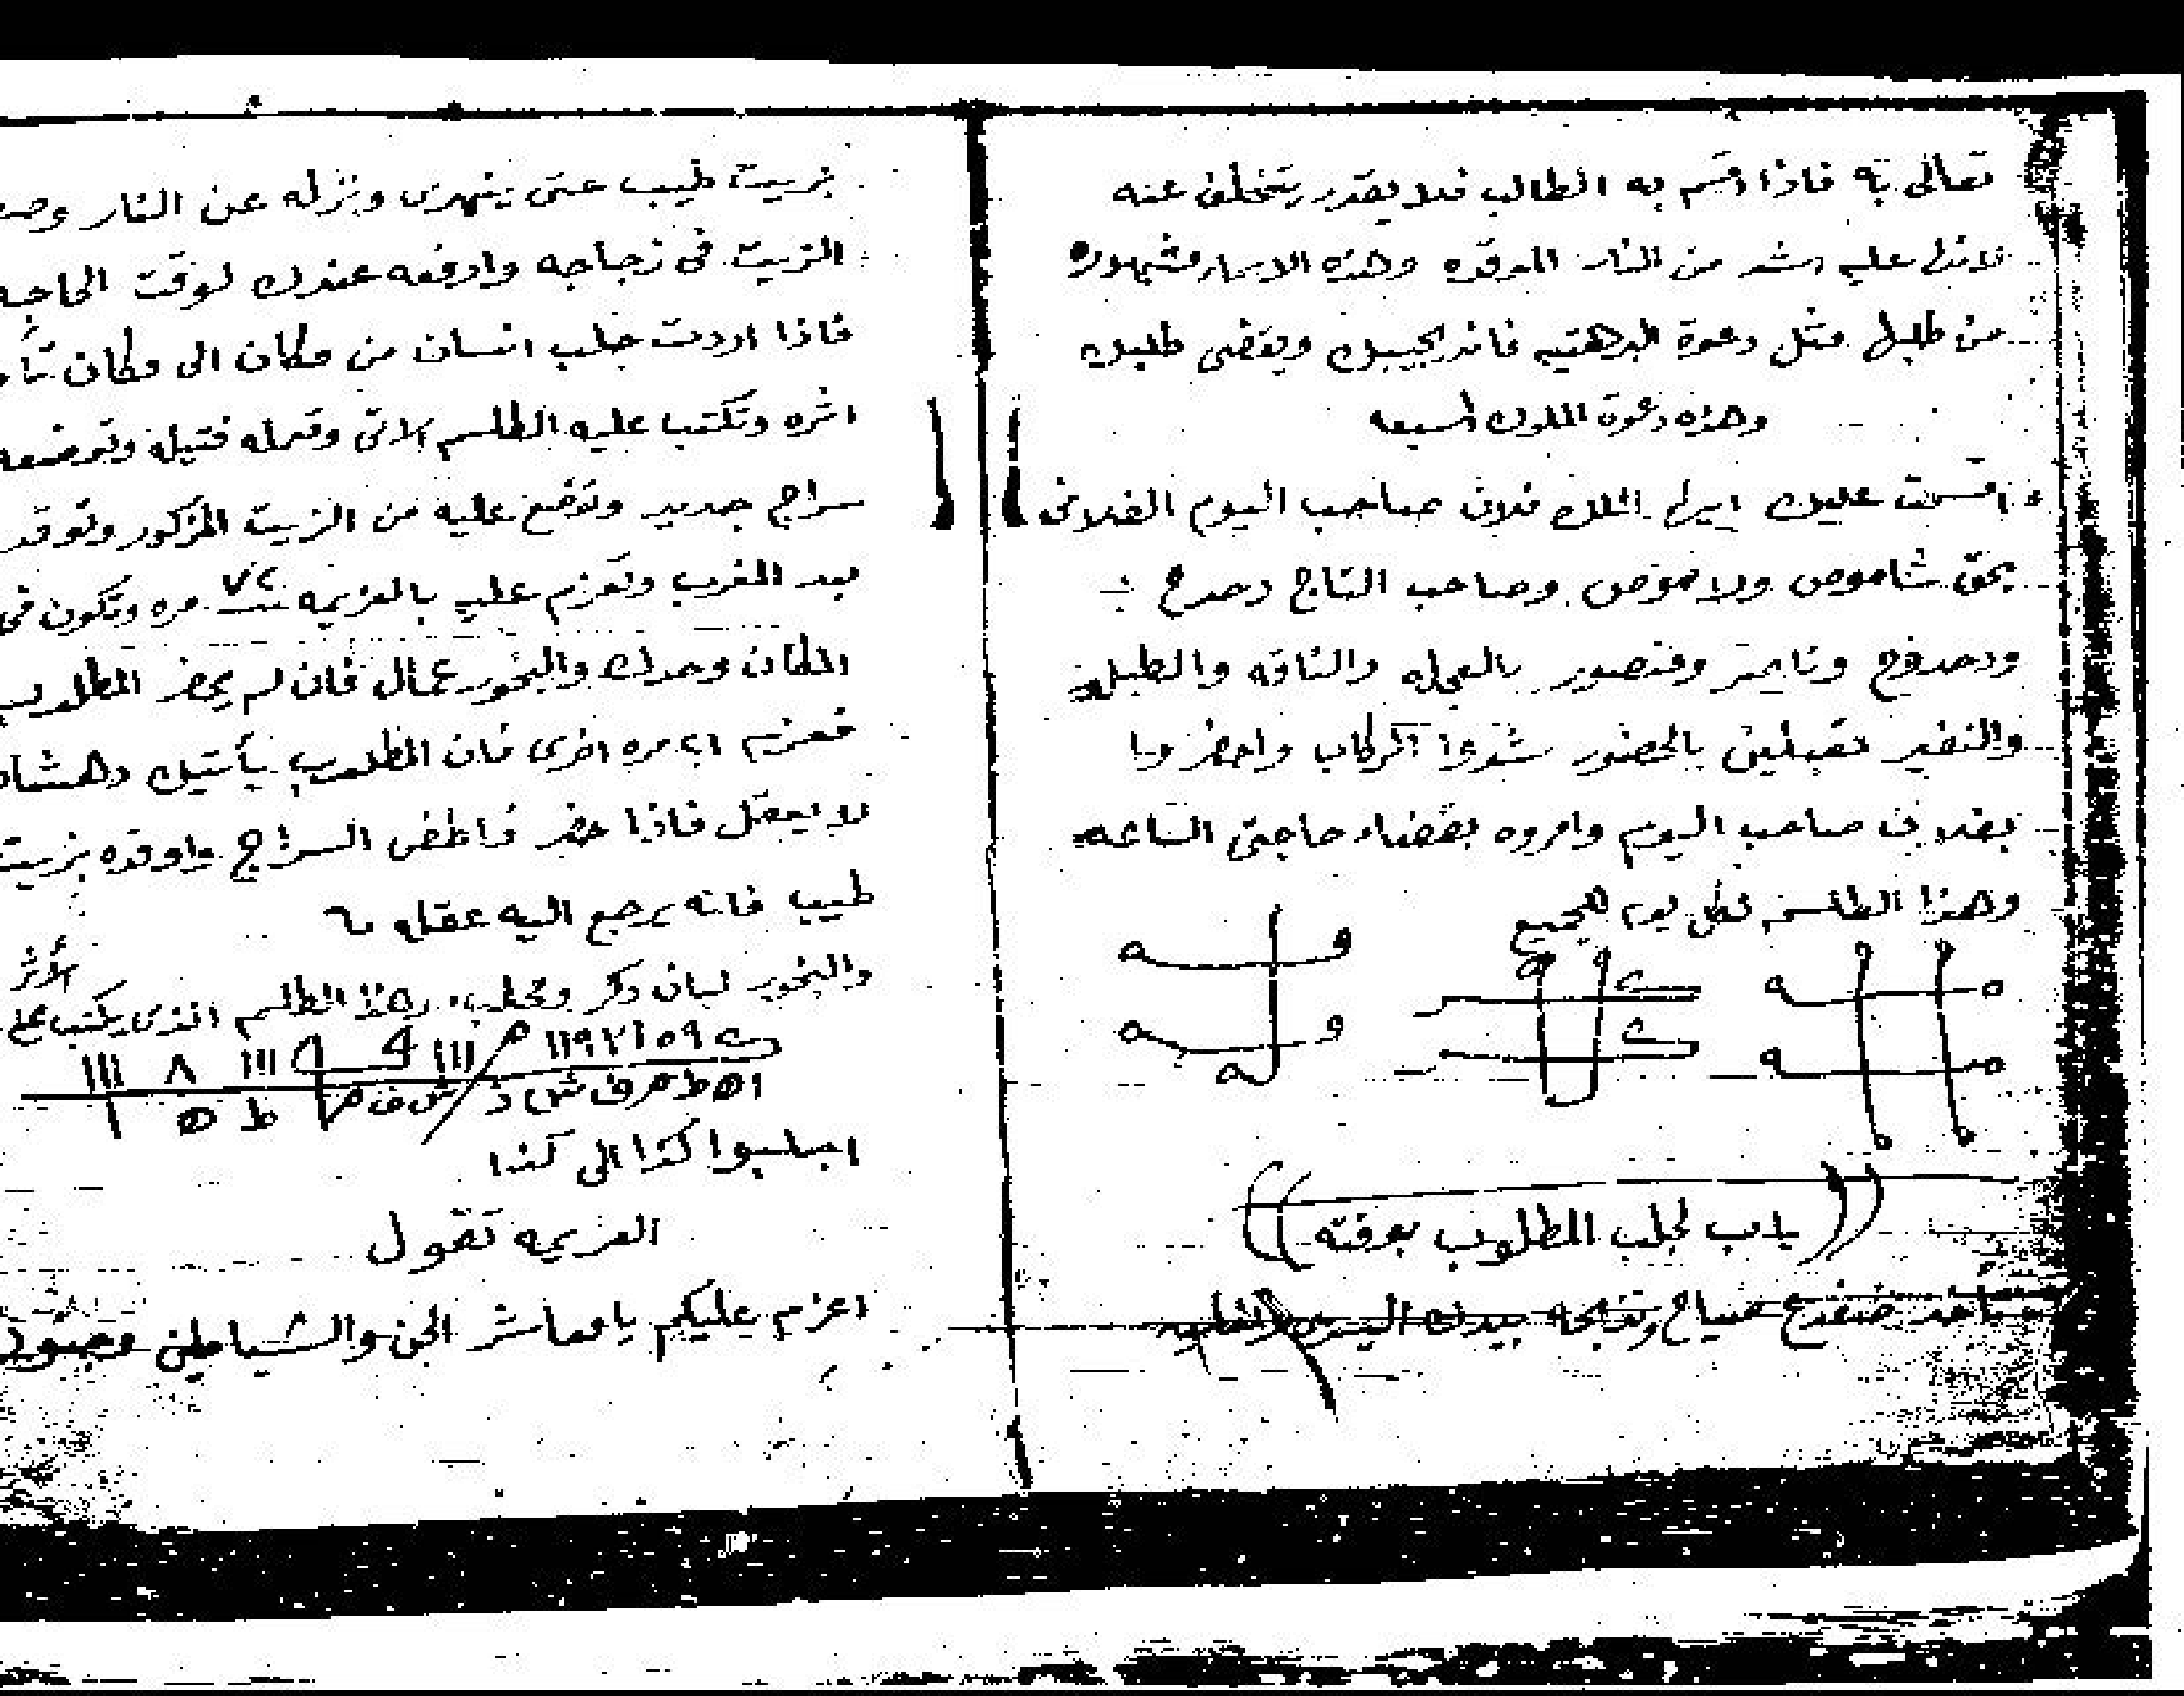 تعالى به فاذا اقسم به الطالب فلا يقدر يتخلف عنه
لانها عليه اشد من النار الموقده وهذه الاسماء مشهوره
من طلبها مثل دعوة البرهتيه فانه يجيبك ويقضى طلبك
وهذه دعوة الملوك السبعه
اقسمت عليك ايها الملك فلان صاحب اليوم الفلانى
بحق شاموص ولاموص وصاحب التاج
ومنصور بالعجله والناقه والطبله
والنفير مقبلين بالحضور شدوا الركاب واحضروا
بفلان صاحب اليوم وامروه بقضاء حاجتى الساعه
وهذا الطلسم لكل يوم للجميع
((باب لجلب المطلوب بوقته))
تاخد ضفدع صياح وتذبحه بيدك اليسرى
بزيت طيب حتى يتهرى ونزله عن النار
الزيت فى زجاجه وادفعه عندك لوقت الحاجه
فاذا اردت جلب انسان من مكان الى مكان
اثره وتكتب عليه الطلسم الاتى وتعمله فتيله وتوضعه
سراج جديد وتوضع عليه من الزيت المذكور وتوقد
بعد المغرب وتعزم عليه بالعزيمه مره وتكون فى
المكان وحدك والبخور عمال فان لم يحضر المطلوب
فعزم مره اخرى فان المطلوب يأتيك
لا يعقل فاذا حضر فاطفى السراج واوقده بزيت
طيب فانه يرجع اليه عقله
والبخور لبان دكر وهذا الطلسم الذى يكتب على
الأثر
اجلبوا كذا الى كذا
العزيمه تقول
اعزم عليكم يا معاشر الجن والشياطين وجنود